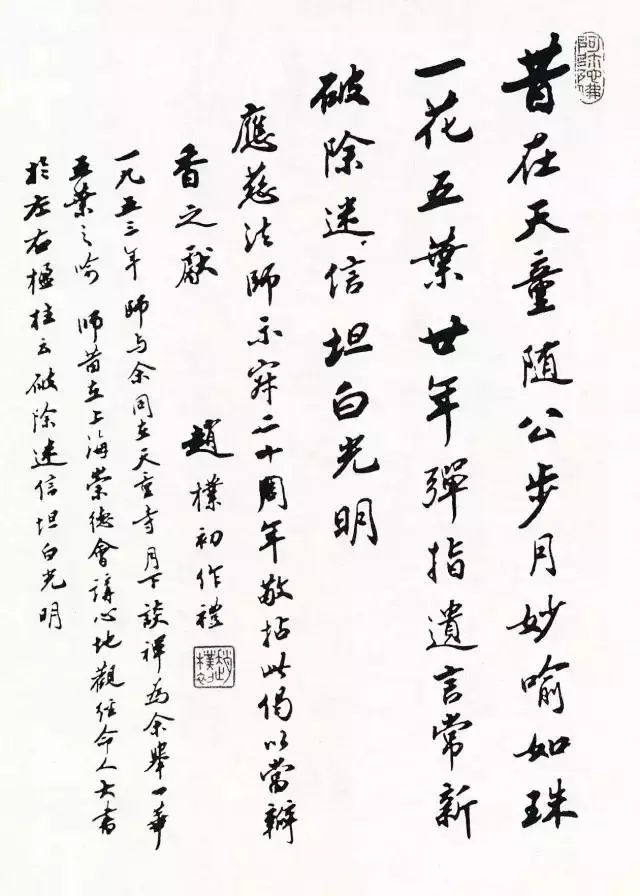 阿弥陀佛
昔在天童随公步月妙喻如珠
一花五葉廿年彈指遺言常新
破除迷信坦白光明
應慈法師示寂二十周年敬拈此偈以當瓣
香之獻
趙樸初作禮
趙樸初
一九五三年師与余同在天童寺月下談禪為余舉一華
五葉之喻師昔在上海崇德會講心地觀經命人大書
於左右楹柱云破除迷信坦白光明